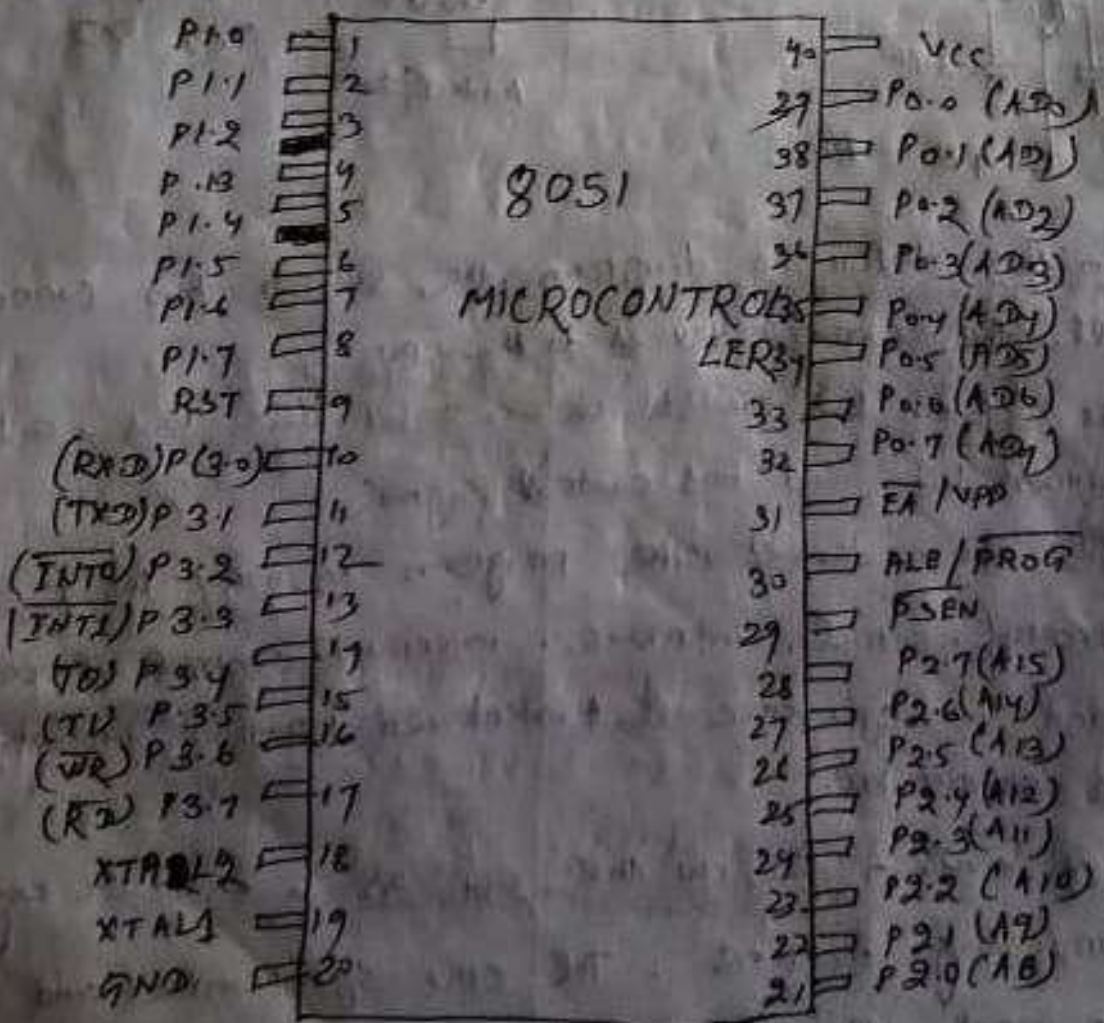 P1.0 1
P1.1 2
P1.2 3
P.13 4
P1.4 5
P1.5 6
P1.6 7
P1.7 8
RST 9
(RXD)P(3.0) 10
(TXD)P 3.1 11
(INT0) P 3.2 12
(INT1) P 3.3 13
(T0) P 3.4 14
(T1) P 3.5 15
(WR) P 3.6 16
(RD) P3.7 17
XTAL2 18
XTAL1 19
GND. 20
8051
MICROCONTROL
LER
40 VCC
39 P0.0 (AD0)
38 P0.1 (AD1)
37 P0.2 (AD2)
36 P0.3 (AD3)
35 P0.4 (AD4)
34 P0.5 (AD5)
33 P0.6 (AD6)
32 P0.7 (AD7)
31 EA / VPP
30 ALE / PROG
29 PSEN
28 P2.7 (A15)
27 P2.6 (A14)
26 P2.5 (A13)
25 P2.4 (A12)
24 P2.3 (A11)
23 P2.2 (A10)
22 P2.1 (A9)
21 P2.0 (A8)